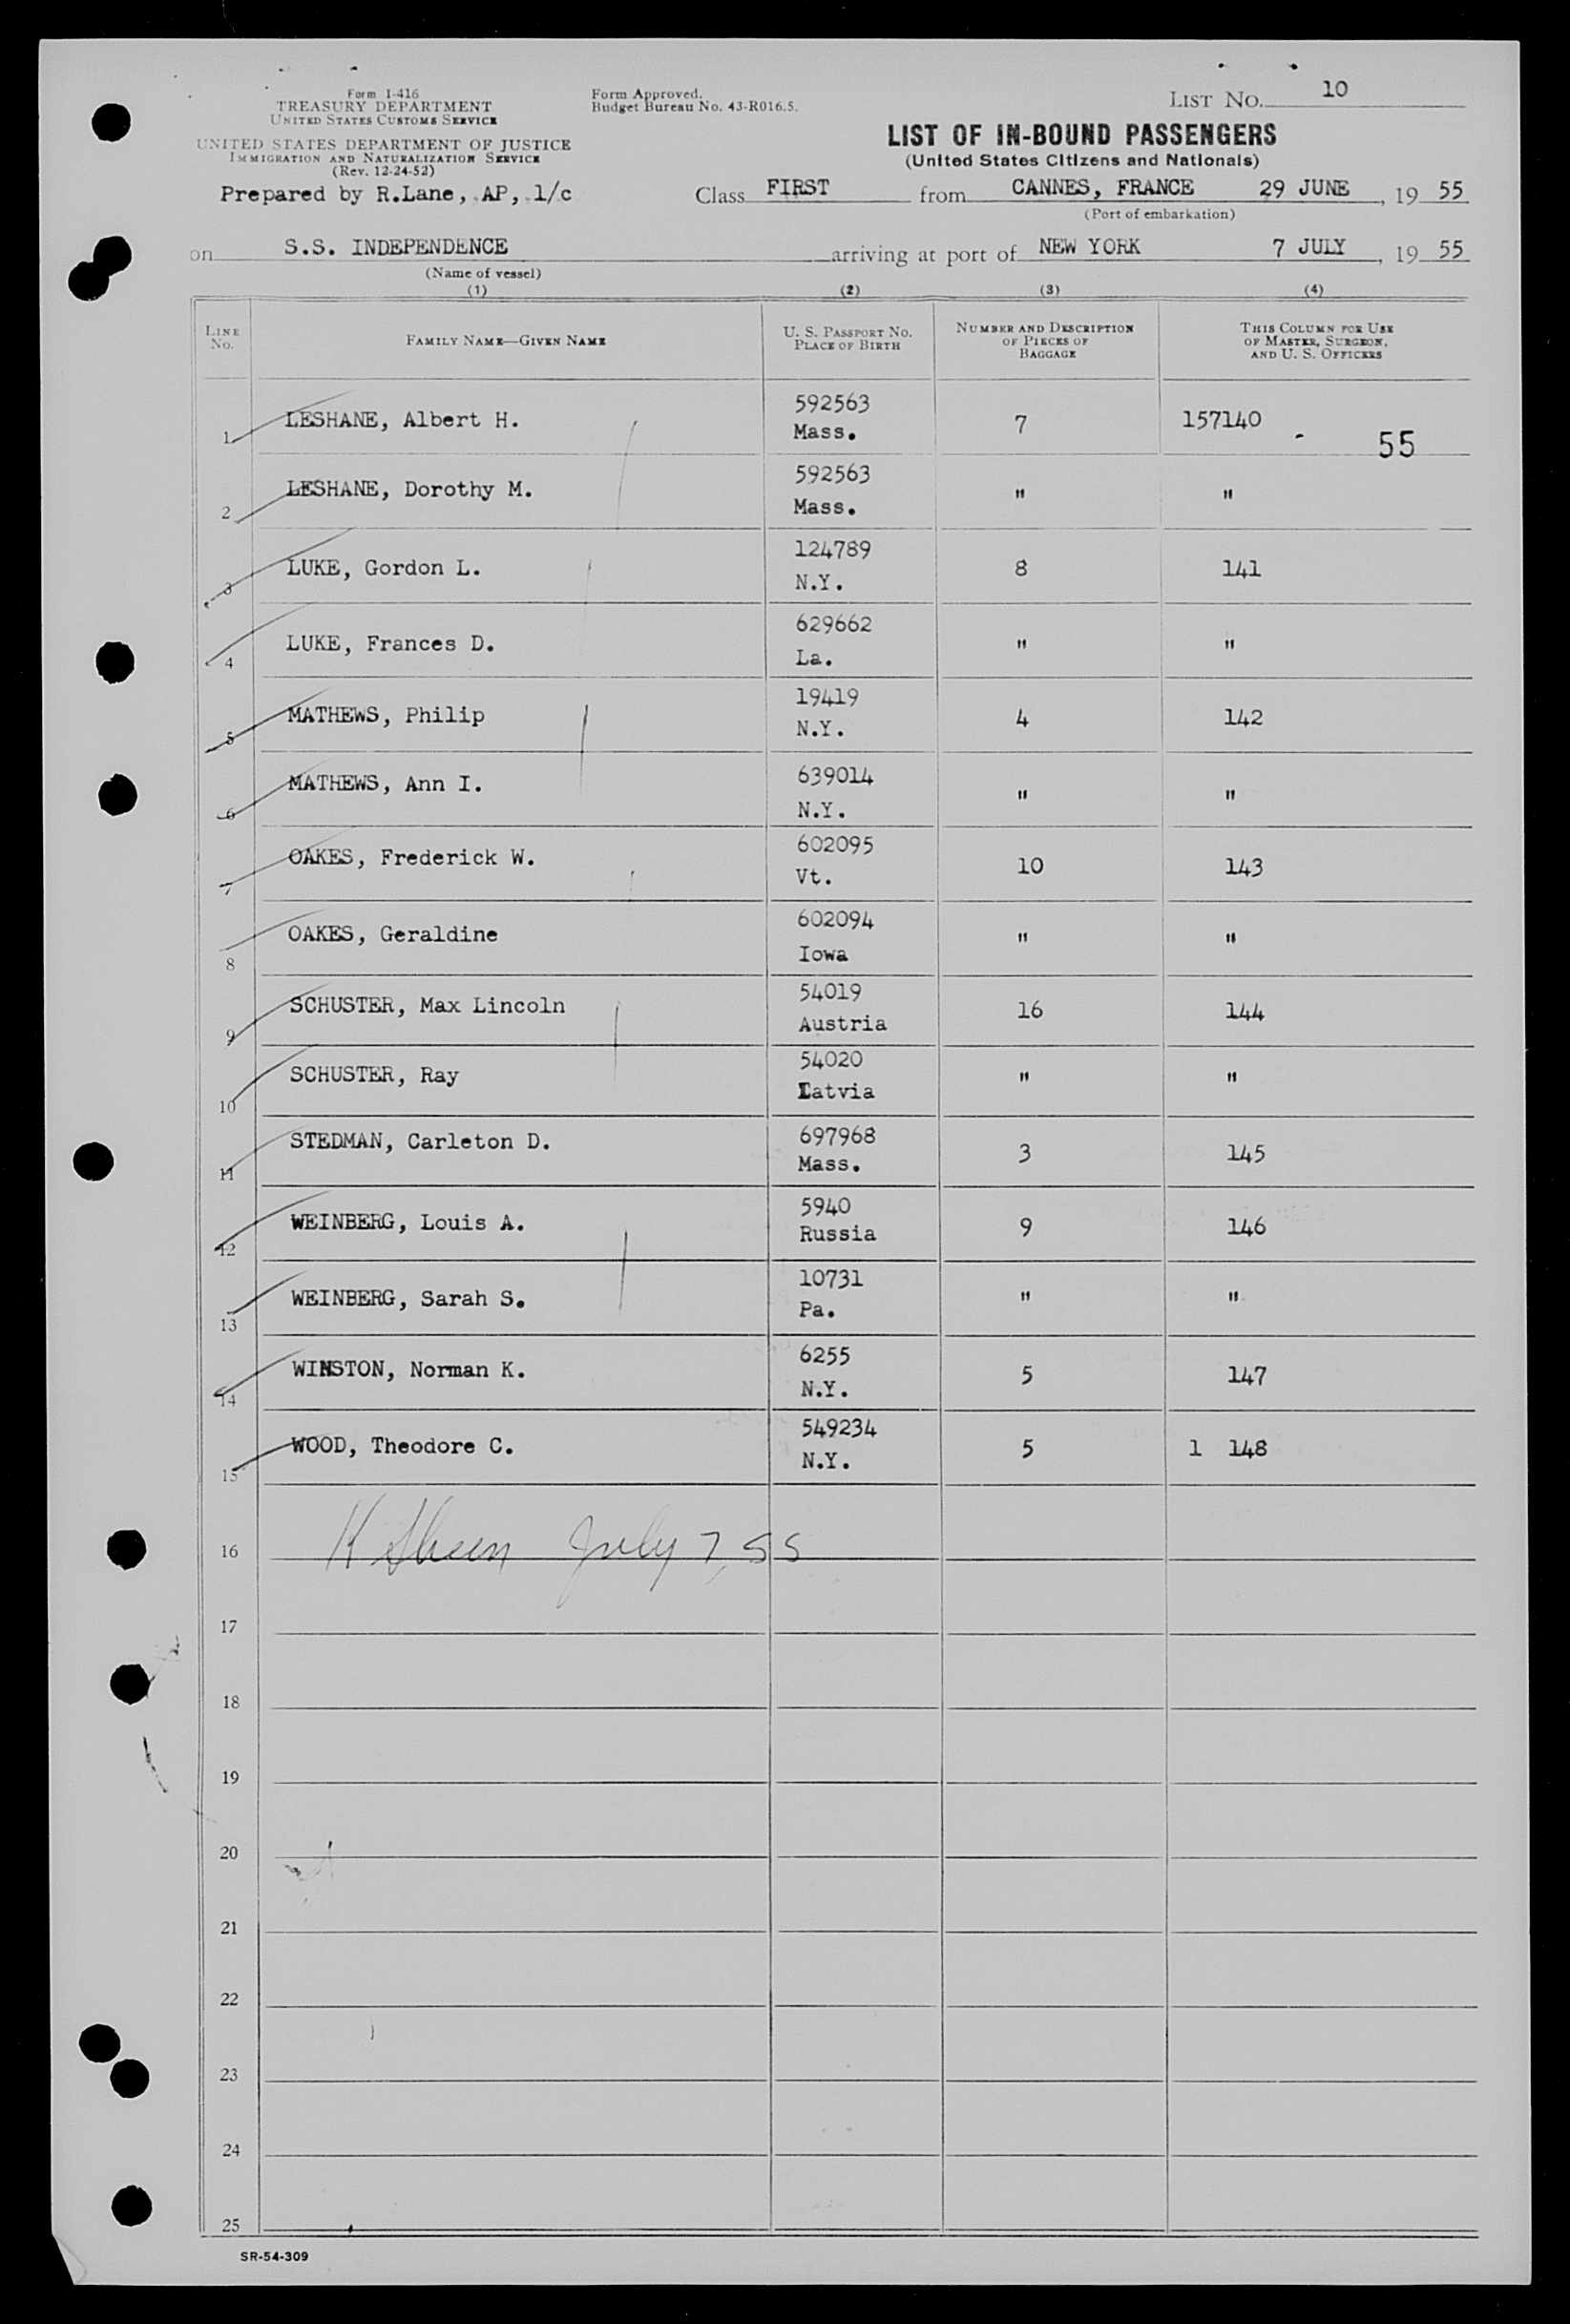 Form I-416
TREASURY DEPARTMENT
UNITED STATES CUSTOMS SERVICE
UNITED STATES DEPARTMENT OF JUSTICE
IMMIGRATION AND NATURALIZATION SERVICE
(Rev. 12-24-52)
Prepared by R.Lane, AP, 1/c
Form Approved.
Budget Bureau No. 43-R016.5.
LIST NO. 10
LIST OF IN-BOUND PASSENGERS
(United States Citizens and Nationals)
Class FIRST from CANNES, FRANCE 29 JUNE, 19 55
(Port of embarkation)
on S.S. INDEPENDENCE arriving at port of NEW YORK 7 JULY, 19 55
(Name of vessel)
(1) (2) (3) (4)
LINE NO. FAMILY NAME—GIVEN NAME U. S. PASSPORT NO. PLACE OF BIRTH NUMBER AND DESCRIPTION OF PIECES OF BAGGAGE THIS COLUMN FOR USE OF MASTER, SURGEON, AND U. S. OFFICERS
1 LESHANE, Albert H. 592563 Mass. 7 157140 - 55
2 LESHANE, Dorothy M. 592563 Mass. " "
3 LUKE, Gordon L. 124789 N.Y. 8 141
4 LUKE, Frances D. 629662 La. " "
5 MATHEWS, Philip 19419 N.Y. 4 142
6 MATHEWS, Ann I. 639014 N.Y. " "
7 OAKES, Frederick W. 602095 Vt. 10 143
8 OAKES, Geraldine 602094 Iowa " "
9 SCHUSTER, Max Lincoln 54019 Austria 16 144
10 SCHUSTER, Ray 54020 Latvia " "
11 STEDMAN, Carleton D. 697968 Mass. 3 145
12 WEINBERG, Louis A. 5940 Russia 9 146
13 WEINBERG, Sarah S. 10731 Pa. " "
14 WINSTON, Norman K. 6255 N.Y. 5 147
15 WOOD, Theodore C. 549234 N.Y. 5 1 148
16 July 7, 55
17
18
19
20
21
22
23
24
25
SR-54-309